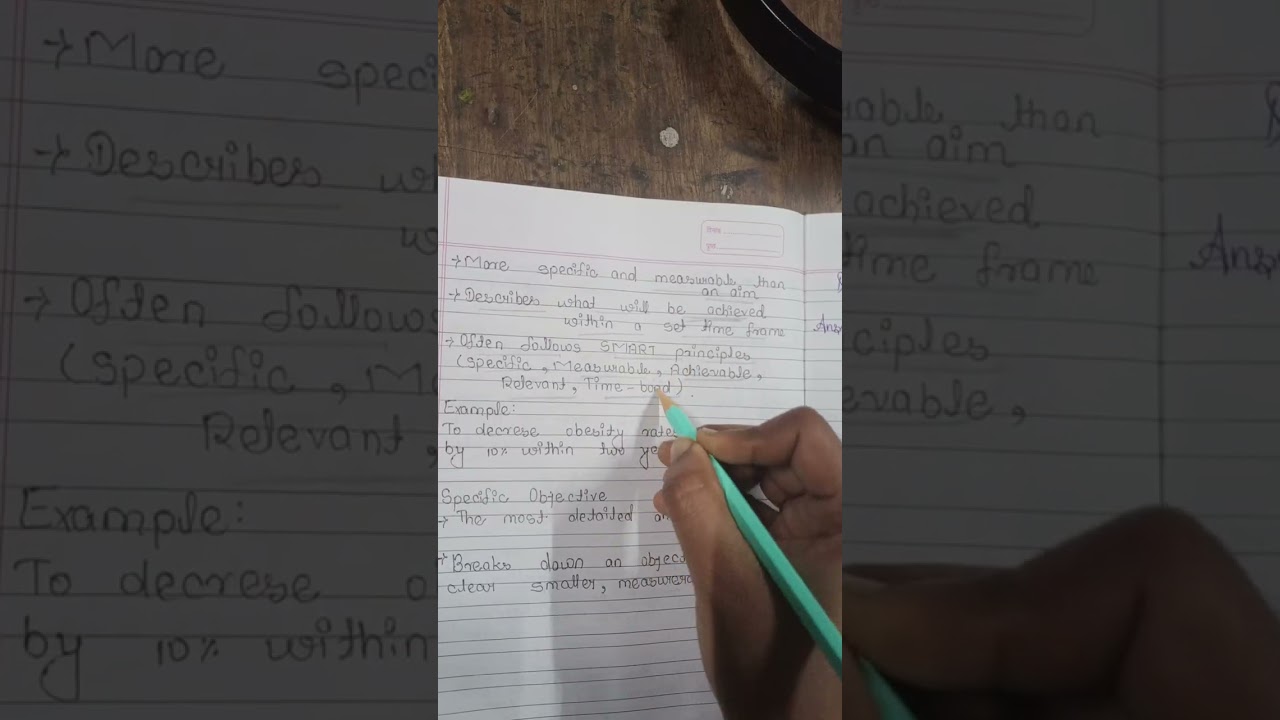 विषय
पृष्ठ
→ More specific and measurable than
an aim
→ Describes what will be achieved
within a set time frame
→ Often follows SMART principles
(Specific, Measurable, Achievable,
Relevant, Time-boad).
Example:
To decrese obesity rates
by 10% within two
Specific Objective
→ The most detailed
→ Breaks down an
clear smaller,
Ans